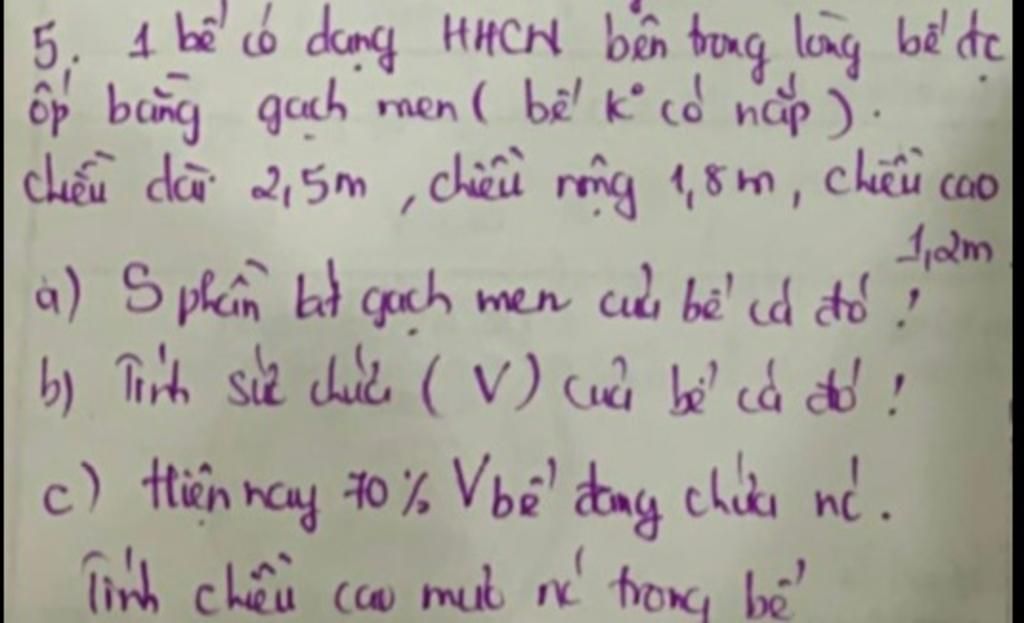 5. 1 bể có dạng HHCN bên trong lòng bể đc
ốp bằng gạch men ( bể k° có nắp ) .
chiều dài 2,5m , chiều rộng 1,8m , chiều cao
1,2m
a) S phần lát gạch men của bể cá đó !
b) Tính sức chứa ( V ) của bể cá đó !
c) Hiện nay 70% V bể đang chứa nc .
Tính chiều cao mực nc trong bể